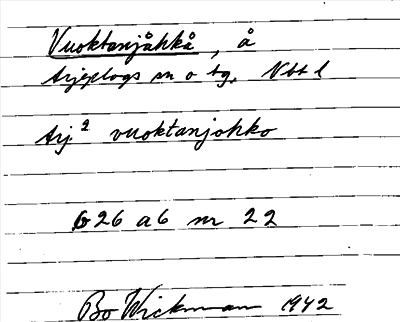 Vuoktanjåhkå, å
Arjeplogs sn o tg, Nbt l
Arj² vuoktanjohko
G26 a6 nr 22
Bo Wickman 1942